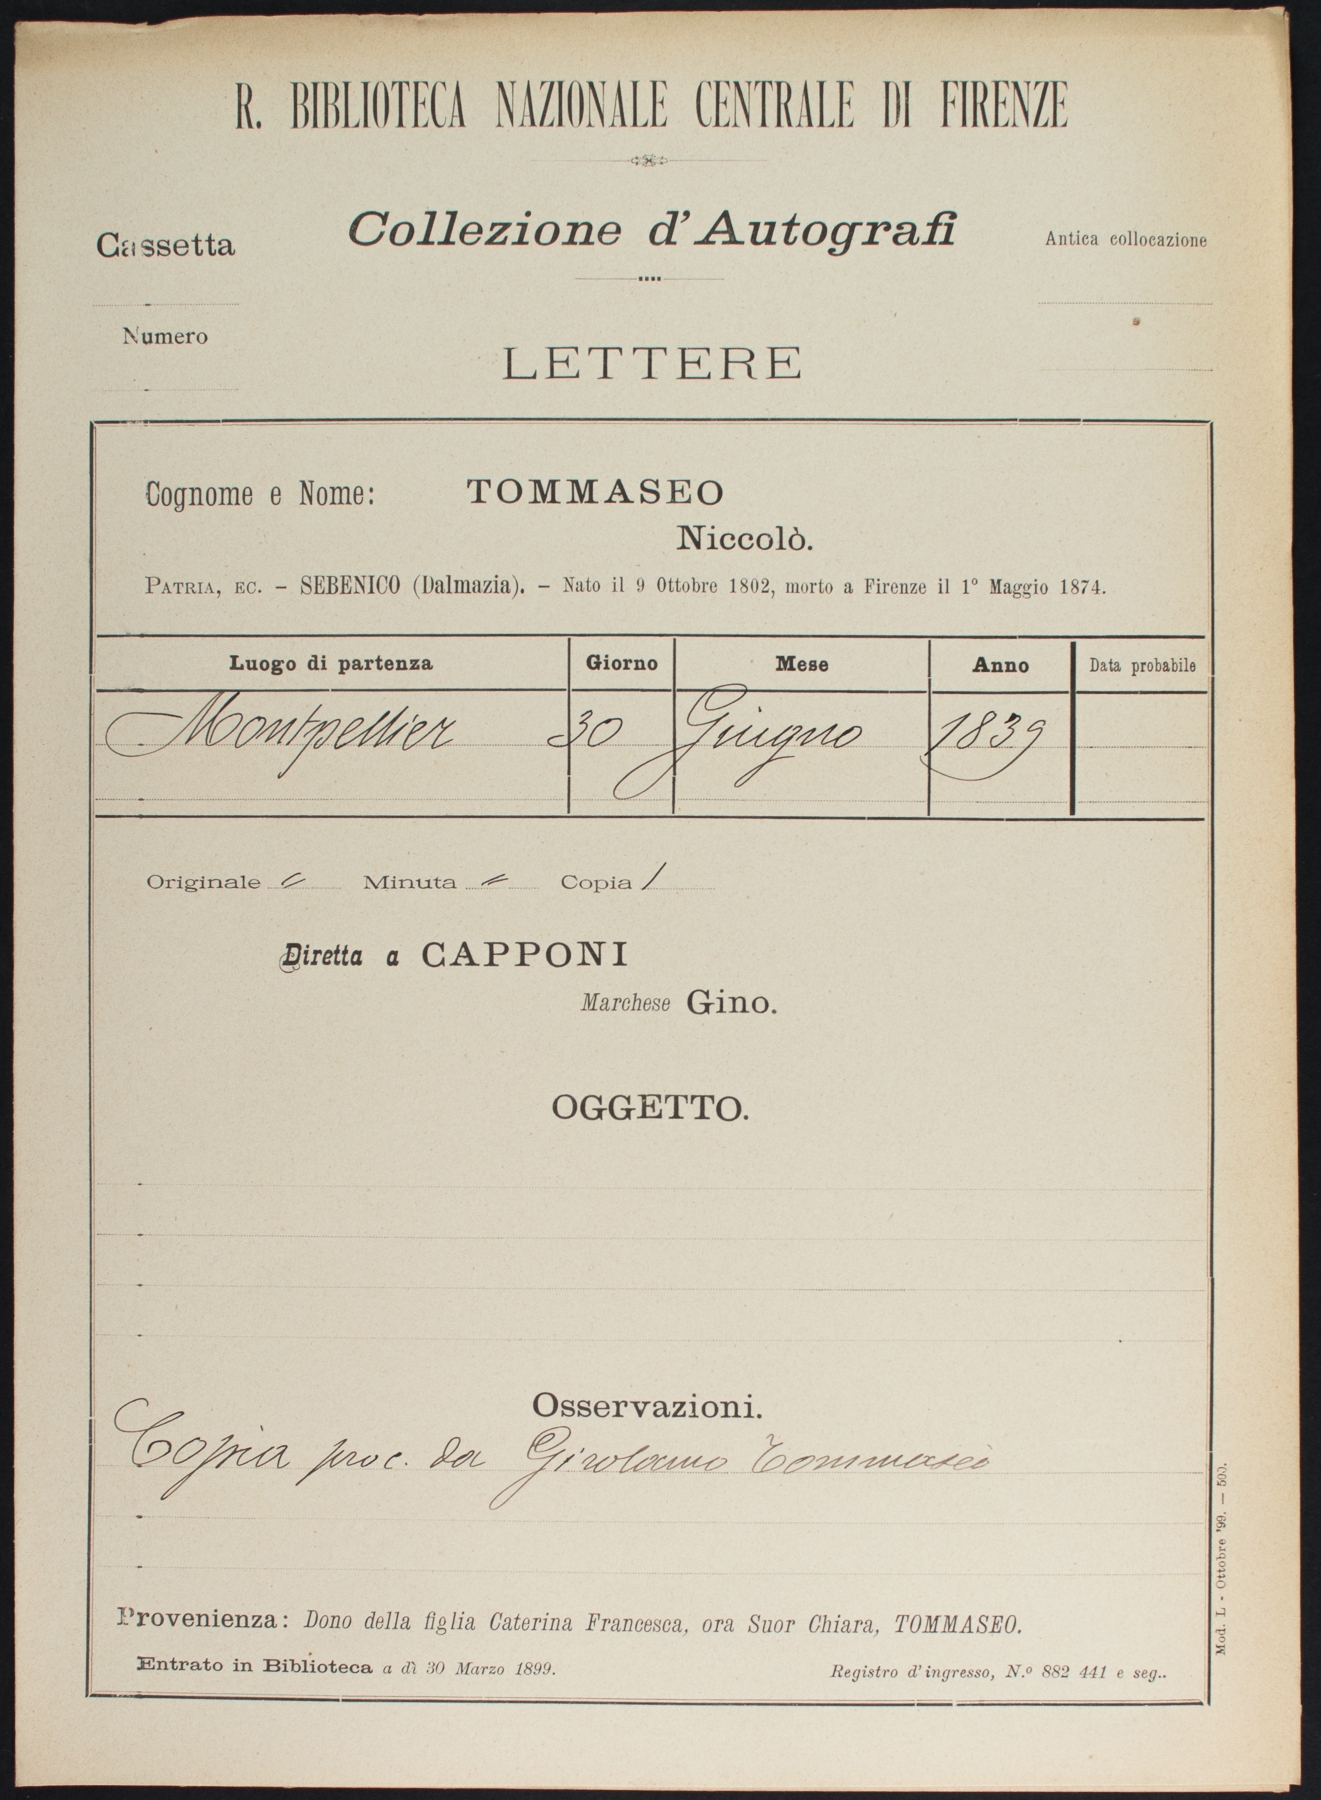 R. BIBLIOTECA NAZIONALE CENTRALE DI FIRENZE
Collezione d'Autografi
Cassetta
Antica collocazione
Numero
LETTERE
Cognome e Nome: TOMMASEO
Niccolò.
PATRIA, EC. – SEBENICO (Dalmazia). – Nato il 9 Ottobre 1802, morto a Firenze il 1º Maggio 1874.
Luogo di partenza Giorno Mese Anno Data probabile
Montpellier 30 Giugno 1839
Originale " Minuta " Copia 1
Diretta a CAPPONI
Marchese Gino.
OGGETTO.
Osservazioni.
Copia proc. da Girolamo Tommaseo
Provenienza: Dono della figlia Caterina Francesca, ora Suor Chiara, TOMMASEO.
Entrato in Biblioteca a dì 30 Marzo 1899.
Registro d'ingresso, N.º 882 441 e seg..
Mod. L - Ottobre '99. — 500.